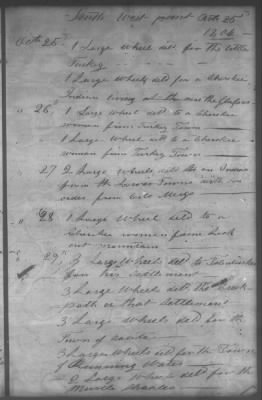 South West point Octr 25th
1806
Octr 25th 1 Large wheel deld for the little
Turkey
1 Large wheels deld for a Cherokee
Indian living at the
" 26 1 Large wheel deld to a Cherokee
woman from Turkey Town
1 Large wheel deld to a Cherokee
woman from Turkey Town
" 27 2 Large wheels deld to an Indian
from the Lower Towns with an
order from Colo Meigs
" 28 1 Large wheel deld to a
Cherokee woman from Look
out mountain
" 29 3 Large wheels deld to
for his Settlement
3 Large wheels deld the
Path or that Settlement
3 Large wheels deld for the
Town of
3 Large wheels deld for the Town
of Running Water
2 Large wheels deld for the
Muscle Shoals